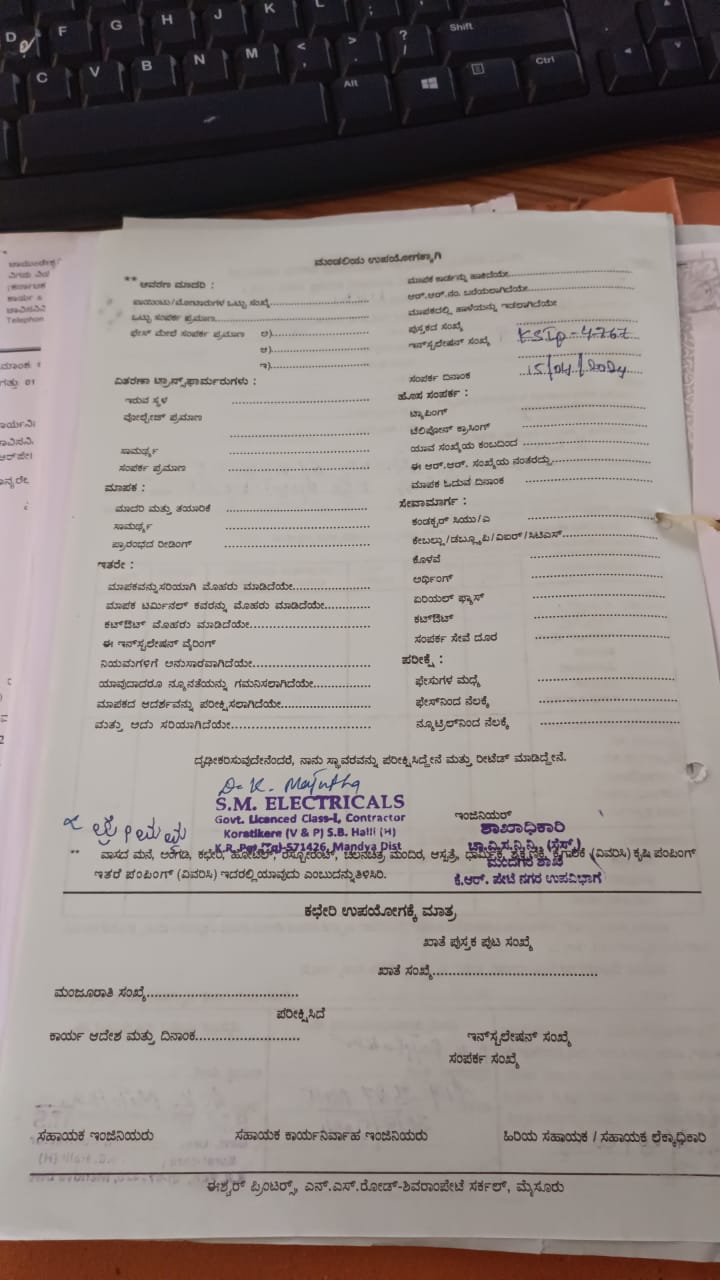 D
F
G
H
J
K
L
C
V
B
N
M
<
,
>
.
?
/
Shift
Alt
Ctrl
ಮಂಡಲಿಯ ಉಪಯೋಗಕ್ಕಾಗಿ
** ಆವರಣ ಮಾದರಿ :
ಪಾಯಿಂಟು/ಮೋಟಾರುಗಳ ಒಟ್ಟು ಸಂಖ್ಯೆ
ಒಟ್ಟು ಸಂಪರ್ಕ ಪ್ರಮಾಣ
ಫೇಸ್ ಮೇಲೆ ಸಂಪರ್ಕ ಪ್ರಮಾಣ ಅ)
ಆ)
ಇ)
ವಿತರಣಾ ಟ್ರಾನ್ಸ್‌ಫಾರ್ಮರುಗಳು :
ಇರುವ ಸ್ಥಳ
ವೋಲ್ಟೇಜ್ ಪ್ರಮಾಣ
ಸಾಮರ್ಥ್ಯ
ಸಂಪರ್ಕ ಪ್ರಮಾಣ
ಮಾಪಕ :
ಮಾದರಿ ಮತ್ತು ತಯಾರಿಕೆ
ಸಾಮರ್ಥ್ಯ
ಪ್ರಾರಂಭದ ರೀಡಿಂಗ್
ಇತರೇ :
ಮಾಪಕವನ್ನು ಸರಿಯಾಗಿ ಮೊಹರು ಮಾಡಿದೆಯೇ
ಮಾಪಕ ಟರ್ಮಿನಲ್ ಕವರನ್ನು ಮೊಹರು ಮಾಡಿದೆಯೇ
ಕಟ್‌ಔಟ್ ಮೊಹರು ಮಾಡಿದೆಯೇ
ಈ ಇನ್‌ಸ್ಟಲೇಷನ್ ವೈರಿಂಗ್
ನಿಯಮಗಳಿಗೆ ಅನುಸಾರವಾಗಿದೆಯೇ
ಯಾವುದಾದರೂ ನ್ಯೂನತೆಯನ್ನು ಗಮನಿಸಲಾಗಿದೆಯೇ
ಮಾಪಕದ ಆದರ್ಶವನ್ನು ಪರೀಕ್ಷಿಸಲಾಗಿದೆಯೇ
ಮತ್ತು ಅದು ಸರಿಯಾಗಿದೆಯೇ
ಮಾಪಕ ಕಾರ್ಡನ್ನು ಹಾಕಿದೆಯೇ
ಆರ್.ಆರ್.ನಂ. ಬರೆಯಲಾಗಿದೆಯೇ
ಮಾಪಕದಲ್ಲಿ ಹಾಳೆಯನ್ನು ಇಡಲಾಗಿದೆಯೇ
ಪುಸ್ತಕದ ಸಂಖ್ಯೆ
ಇನ್‌ಸ್ಟಲೇಷನ್ ಸಂಖ್ಯೆ KSIp-4767
ಸಂಪರ್ಕ ದಿನಾಂಕ 15/04/2024
ಹೊಸ ಸಂಪರ್ಕ :
ಟ್ಯಾಪಿಂಗ್
ಟೆಲಿಫೋನ್ ಕ್ರಾಸಿಂಗ್
ಯಾವ ಸಂಖ್ಯೆಯ ಕಂಬದಿಂದ
ಈ ಆರ್.ಆರ್. ಸಂಖ್ಯೆಯ ನಂತರದ್ದು
ಮಾಪಕ ಓದುವ ದಿನಾಂಕ
ಸೇವಾಮಾರ್ಗ :
ಕಂಡಕ್ಟರ್ ಸಿಯು/ಎ
ಕೇಬಲ್ಲು/ಡಬ್ಲ್ಯೂಪಿ/ವಿಐಆರ್/ಸಿಟಿಎಸ್
ಕೊಳವೆ
ಅರ್ಥಿಂಗ್
ಏರಿಯಲ್ ಫ್ಯೂಸ್
ಕಟ್‌ಔಟ್
ಸಂಪರ್ಕ ಸೇವೆ ದೂರ
ಪರೀಕ್ಷೆ :
ಫೇಸುಗಳ ಮಧ್ಯೆ
ಫೇಸ್‌ನಿಂದ ನೆಲಕ್ಕೆ
ನ್ಯೂಟ್ರಲ್‌ನಿಂದ ನೆಲಕ್ಕೆ
ದೃಢೀಕರಿಸುವುದೇನೆಂದರೆ, ನಾನು ಸ್ಥಾವರವನ್ನು ಪರೀಕ್ಷಿಸಿದ್ದೇನೆ ಮತ್ತು ರೀಟೆಡ್ ಮಾಡಿದ್ದೇನೆ.
S.M. ELECTRICALS
Govt. Licenced Class-I, Contractor
Koratikere (V & P) S.B. Halli (H)
K.R. Pet (Tq)-571426, Mandya Dist
ಇಂಜಿನಿಯರ್
ಶಾಖಾಧಿಕಾರಿ
ಚಾ.ವಿ.ಸ.ನಿ.ನಿ., (ಸೆಸ್ಕ್)
ಮಂದಗೆರೆ ಶಾಖೆ
ಕೆ.ಆರ್. ಪೇಟೆ ನಗರ ಉಪವಿಭಾಗ
** ವಾಸದ ಮನೆ, ಅಂಗಡಿ, ಕಛೇರಿ, ಹೋಟೆಲ್, ರೆಸ್ಟೋರೆಂಟ್, ಚಲನಚಿತ್ರ ಮಂದಿರ, ಆಸ್ಪತ್ರೆ, ಧಾರ್ಮಿಕ, ಶೈಕ್ಷಣಿಕ, ಕೈಗಾರಿಕೆ (ವಿವರಿಸಿ) ಕೃಷಿ ಪಂಪಿಂಗ್
ಇತರೆ ಪಂಪಿಂಗ್ (ವಿವರಿಸಿ) ಇದರಲ್ಲಿ ಯಾವುದು ಎಂಬುದನ್ನು ತಿಳಿಸಿರಿ.
ಕಛೇರಿ ಉಪಯೋಗಕ್ಕೆ ಮಾತ್ರ
ಖಾತೆ ಪುಸ್ತಕ ಪುಟ ಸಂಖ್ಯೆ
ಖಾತೆ ಸಂಖ್ಯೆ
ಮಂಜೂರಾತಿ ಸಂಖ್ಯೆ
ಪರೀಕ್ಷಿಸಿದೆ
ಕಾರ್ಯ ಆದೇಶ ಮತ್ತು ದಿನಾಂಕ
ಇನ್‌ಸ್ಟಲೇಷನ್ ಸಂಖ್ಯೆ
ಸಂಪರ್ಕ ಸಂಖ್ಯೆ
ಸಹಾಯಕ ಇಂಜಿನಿಯರು ಸಹಾಯಕ ಕಾರ್ಯನಿರ್ವಾಹ ಇಂಜಿನಿಯರು ಹಿರಿಯ ಸಹಾಯಕ / ಸಹಾಯಕ ಲೆಕ್ಕಾಧಿಕಾರಿ
ಈಶ್ವರ್ ಪ್ರಿಂಟರ್ಸ್, ಎನ್.ಎಸ್.ರೋಡ್-ಶಿವರಾಂಪೇಟೆ ಸರ್ಕಲ್, ಮೈಸೂರು